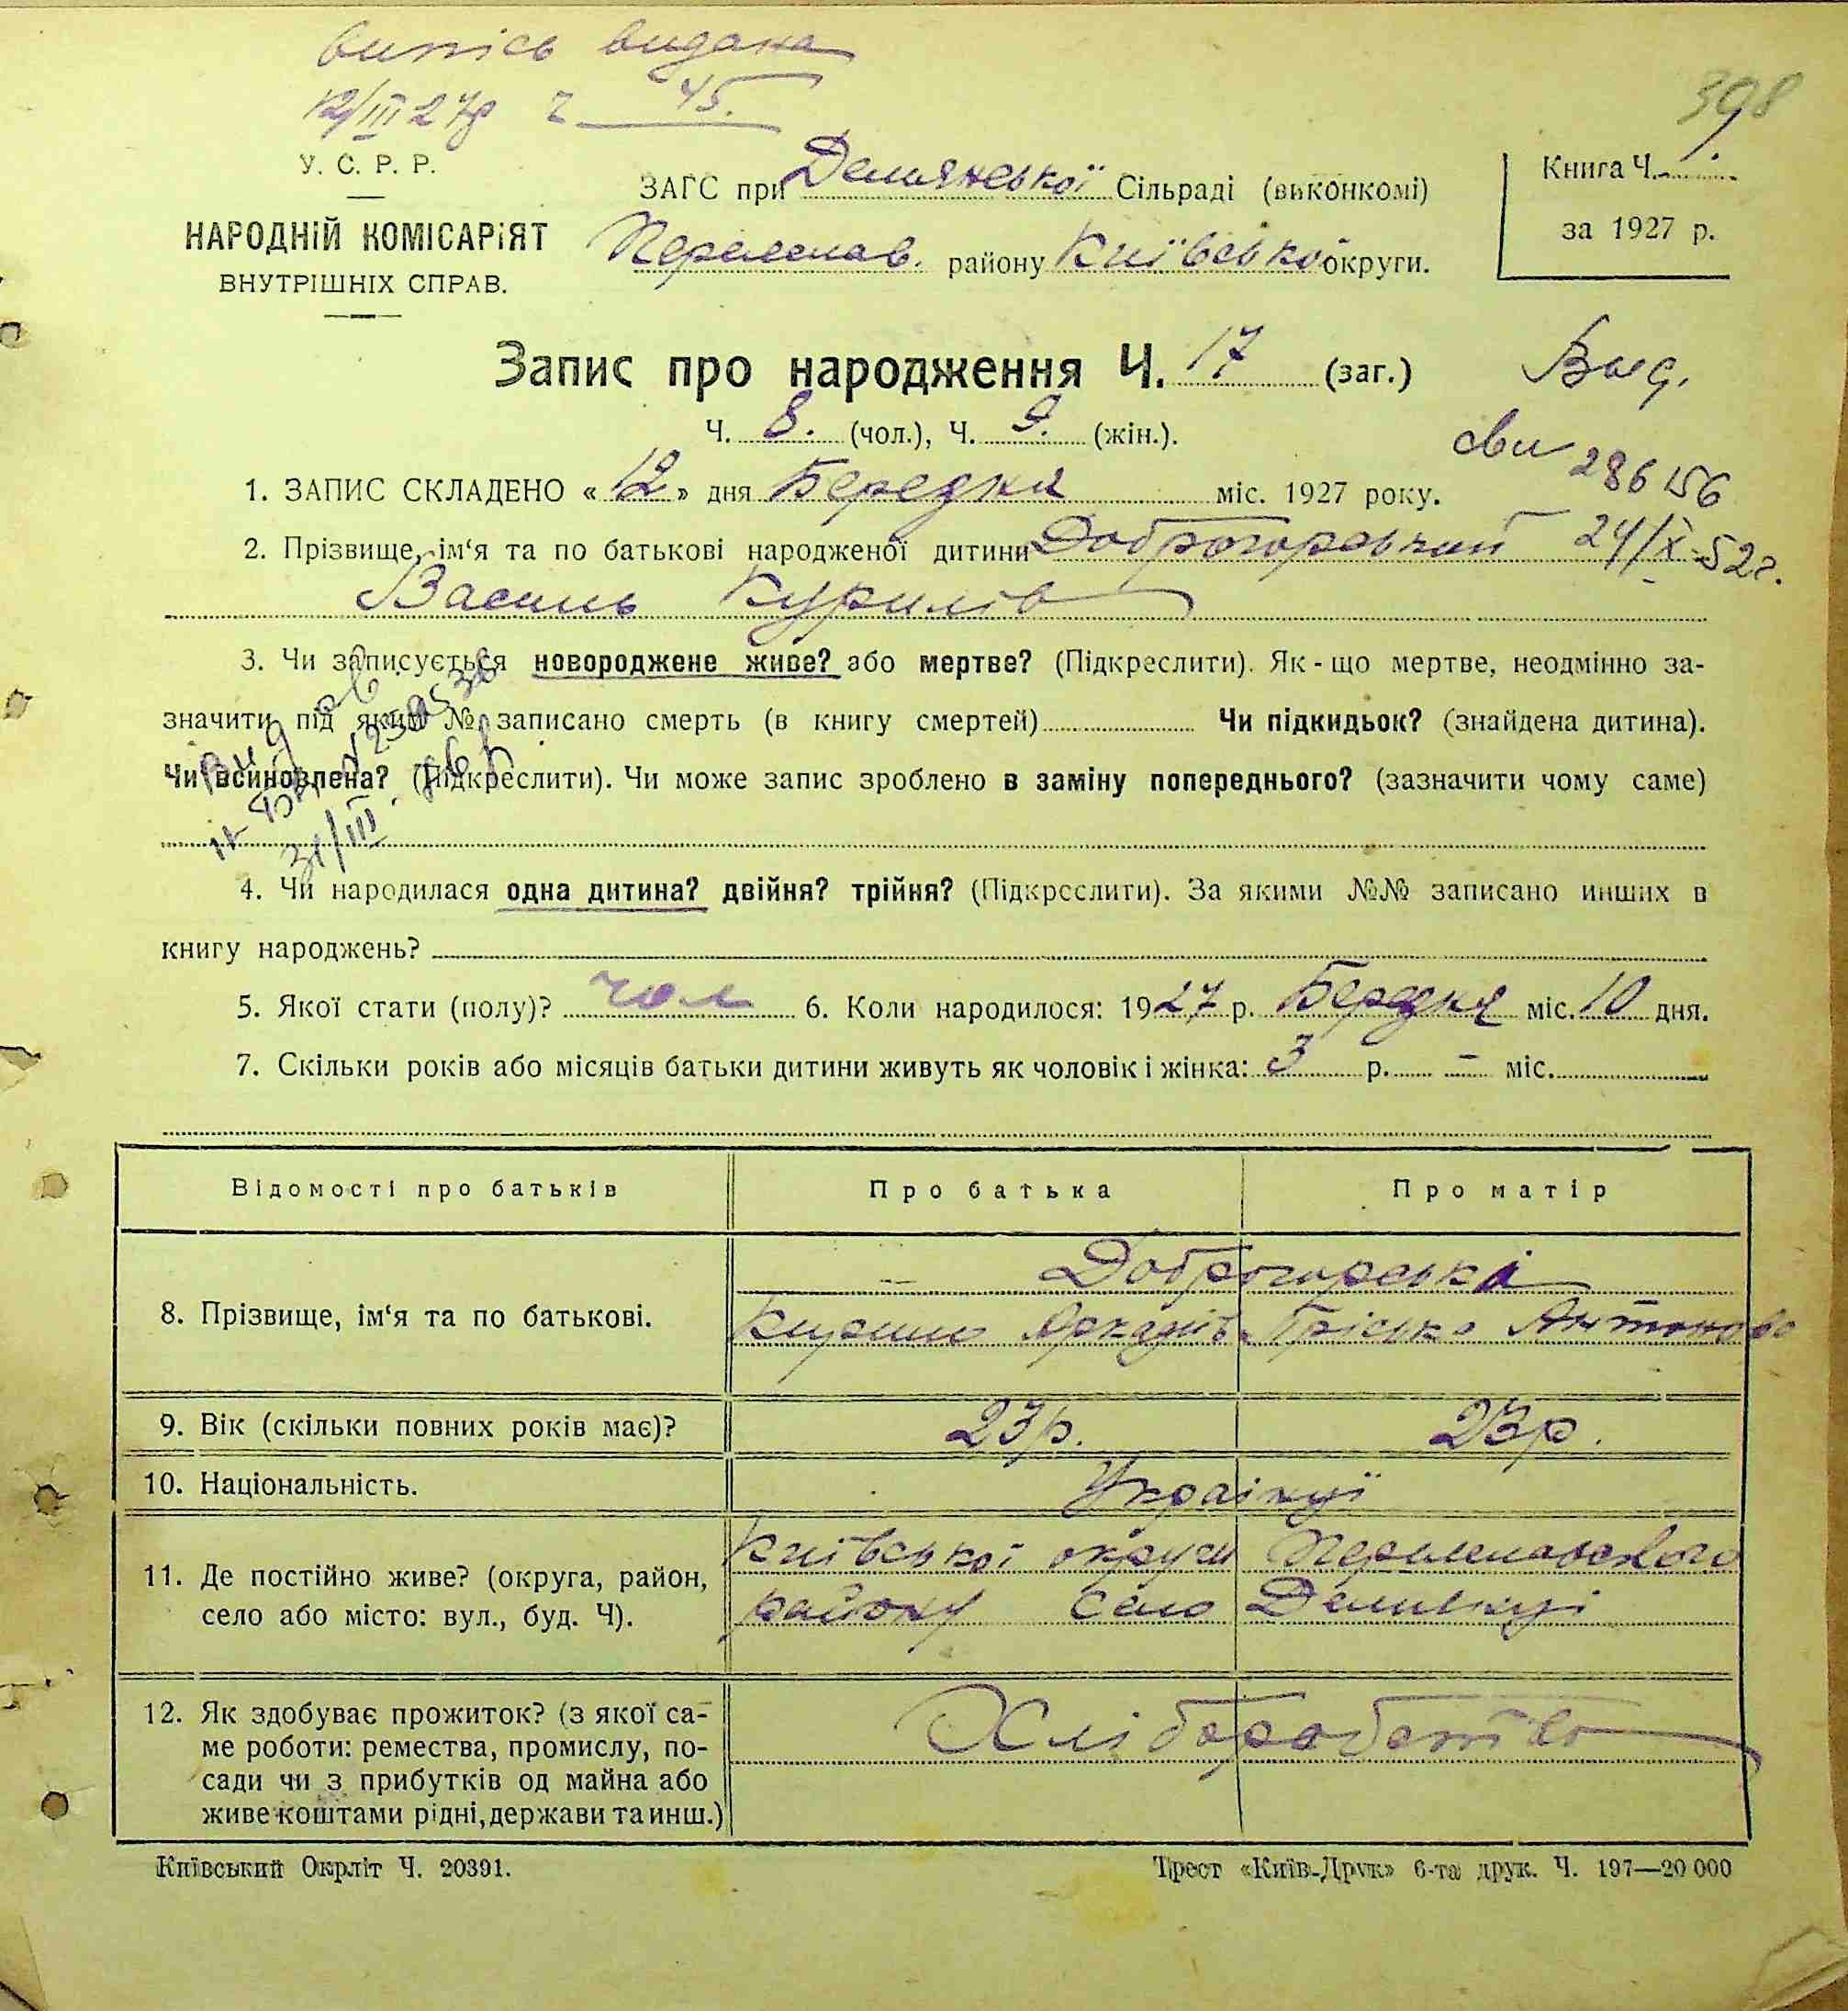 випісь видана
12/III 27р ч 45.
398
У. С. Р. Р.
НАРОДНІЙ КОМІСАРІЯТ
ВНУТРІШНІХ СПРАВ.
ЗАГС при Демянської Сільраді (виконкомі)
Переяслав. району Київської округи.
Книга Ч.
за 1927 р.
Запис про народження Ч. 17 (заг.)
Выд.
Ч. 8. (чол.), Ч. 9. (жін.).
286156
1. ЗАПИС СКЛАДЕНО «12» дня Березня міс. 1927 року.
2. Прізвище, ім‘я та по батькові народженої дитини Доброгорський 24/X-52г.
Василь Курилів
3. Чи записується новороджене живе? або мертве? (Підкреслити). Як-що мертве, неодмінно за-
значити під яким № записано смерть (в книгу смертей) Чи підкидьок? (знайдена дитина).
Чи всиновлена? (Підкреслити). Чи може запис зроблено в заміну попереднього? (зазначити чому саме)
31/III
4. Чи народилася одна дитина? двійня? трійня? (Підкреслити). За якими №№ записано инших в
книгу народжень?
5. Якої стати (полу)? чол 6. Коли народилося: 1927 р. Березня міс. 10 дня.
7. Скільки років або місяців батьки дитини живуть як чоловік і жінка: 3 р. — міс.
Відомості про батьків Про батька Про матір
Доброгорські
8. Прізвище, ім‘я та по батькові. Кирило Аркадів Пріська Антонова
9. Вік (скільки повних років має)? 23р. 23р.
10. Національність. Українці
11. Де постійно живе? (округа, район, Київської округи Переяславського
село або місто: вул., буд. Ч). району село Демянці
12. Як здобуває прожиток? (з якої са- Хліборобство
ме роботи: ремества, промислу, по-
сади чи з прибутків од майна або
живе коштами рідні, держави та инш.)
Київський Окрліт Ч. 20391. Трест «Київ-Друк» 6-та друк. Ч. 197—20 000